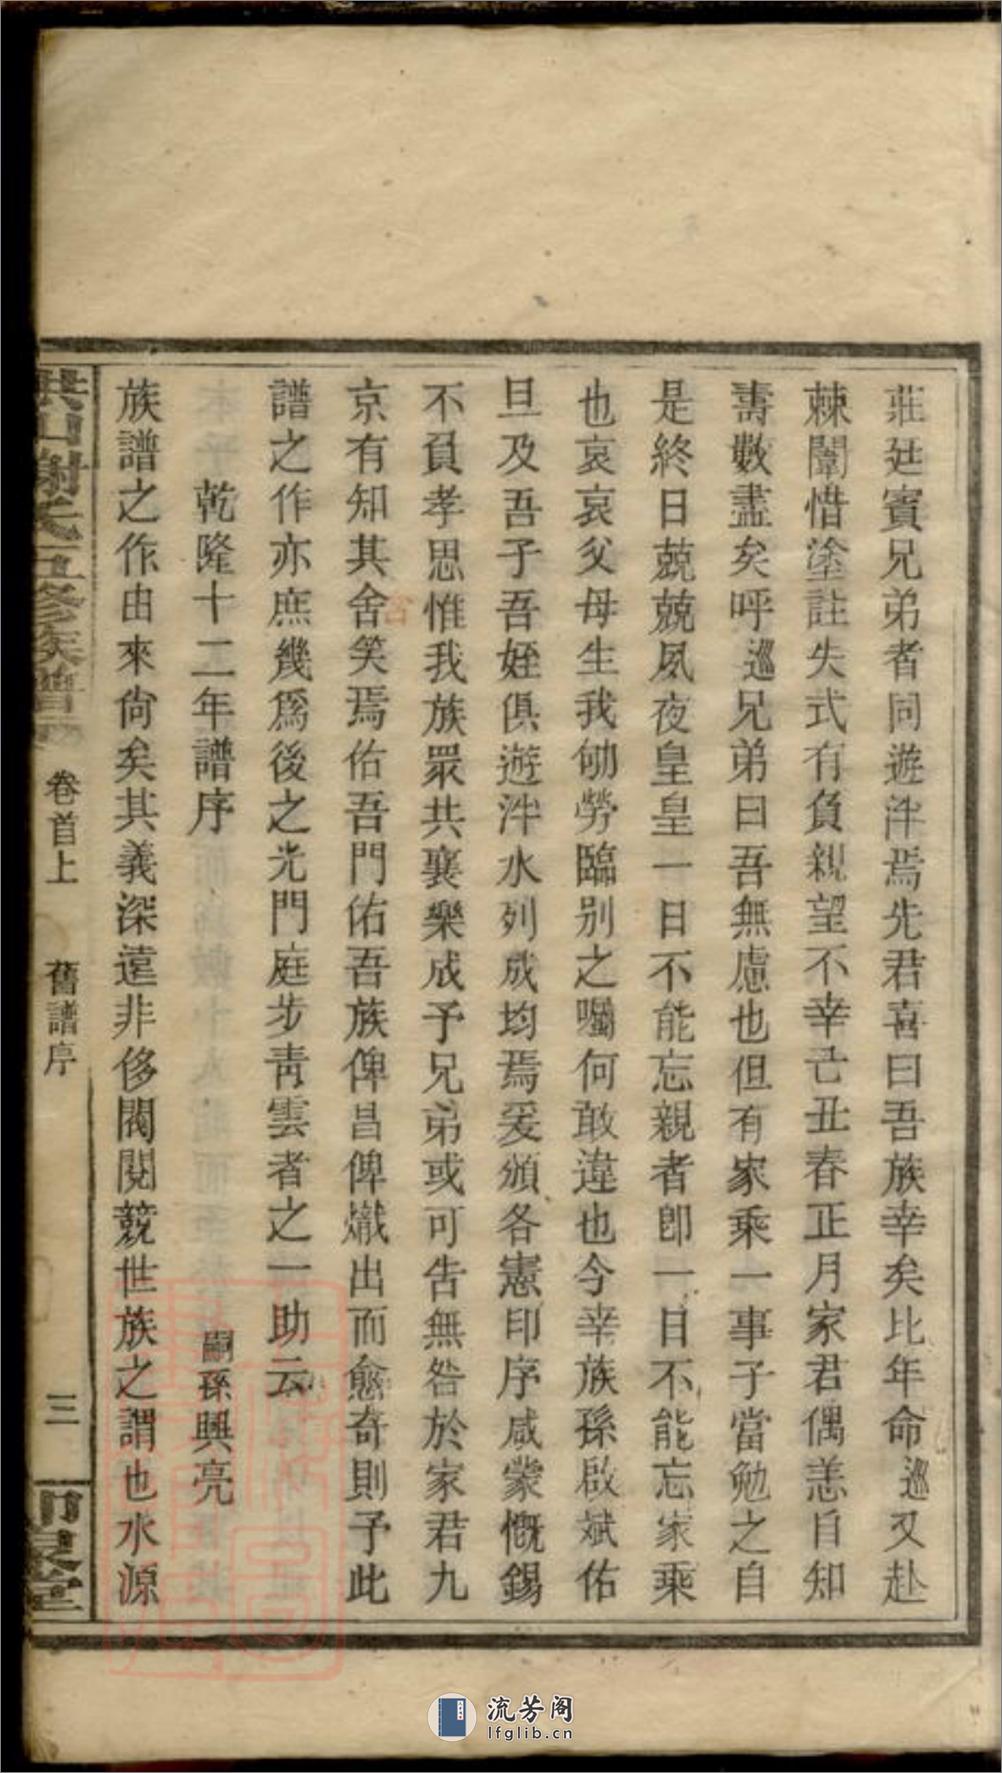 莊廷賓兄弟者同遊泮焉先君喜曰吾族幸矣比年命巡又赴
棘闈惜塗註失式有負親望不幸己丑春正月家君偶恙自知
壽數盡矣呼巡兄弟曰吾無慮也但有家乘一事子當勉之自
是終日兢兢夙夜皇皇一日不能忘親者卽一日不能忘家乘
也哀哀父母生我劬勞臨別之囑何敢違也今幸族孫啟斌佑
旦及吾子吾姪俱遊泮水列成均焉爰頒各憲印序咸蒙慨錫
不負孝思惟我族眾共襄樂成予兄弟或可告無咎於家君九
京有知其含笑焉佑吾門佑吾族俾昌俾熾出而愈奇則予此
譜之作亦庶幾爲後之光門庭步靑雲者之一助云
乾隆十二年譜序 嗣孫興亮
族譜之作由來尙矣其義深遠非侈閥閱競世族之謂也水源
洪山謝氏五修族譜 卷首上 舊譜序 三
流芳阁
lfglib.cn